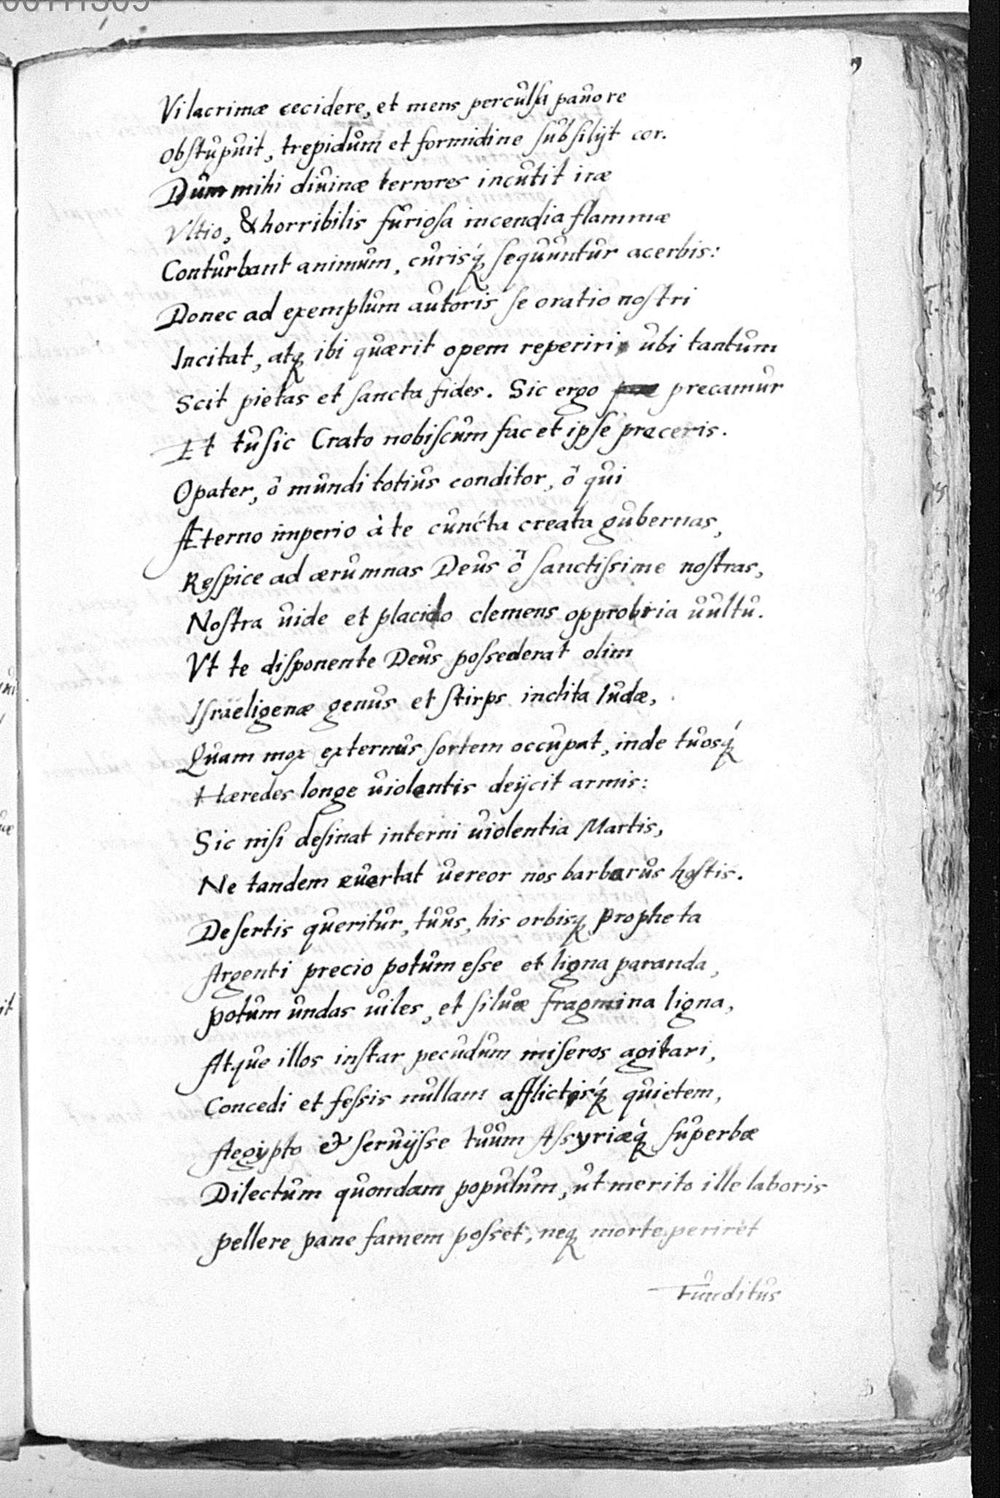 Vi lacrimæ cecidere, et mens perculsa pauore
Obstupuit, trepidum et formidine subsilijt cor.
Dum mihi diuinæ terrores incutit iræ
Vltio, & horribilis furiosa incendia flammæ
Conturbant animum, curisq́; sequuntur acerbis:
Donec ad exemplum autoris se oratio nostri
Incitat, atq; ibi quærit opem reperiri, ubi tantum
Scit pietas et sancta fides. Sic ergo precamur
Et tu sic Crato nobiscum fac et ipse preceris.
O pater, ô mundi totius conditor, ô qui
Æterno imperio à te cuncta creata gubernas,
Respice ad ærumnas Deus ô sanctissime nostras,
Nostra uide et placido clemens opprobria uultu.
Vt te disponente Deus possederat olim
Israëligenæ genus et stirps inclita Iudæ,
Quam mox externus sortem occupat, inde tuosq́;
Hæredes longe violentis deijcit armis:
Sic nisi desinat interni violentia Martis,
Ne tandem euertat uereor nos barbarus hostis.
Desertis queritur, tuus, his orbisq; Propheta
Argenti precio potum esse et ligna paranda,
Potum undas uiles, et siluæ fragmina ligna,
Atque illos instar pecudum miseros agitari,
Concedi et fessis nullam afflictisq́; quietem,
Aegypto & seruijsse tuum Assyriæq́; superbæ
Dilectum quondam populum, ut merito ille laboris
Pellere pane famem posset, neq; morte periret
Funditus